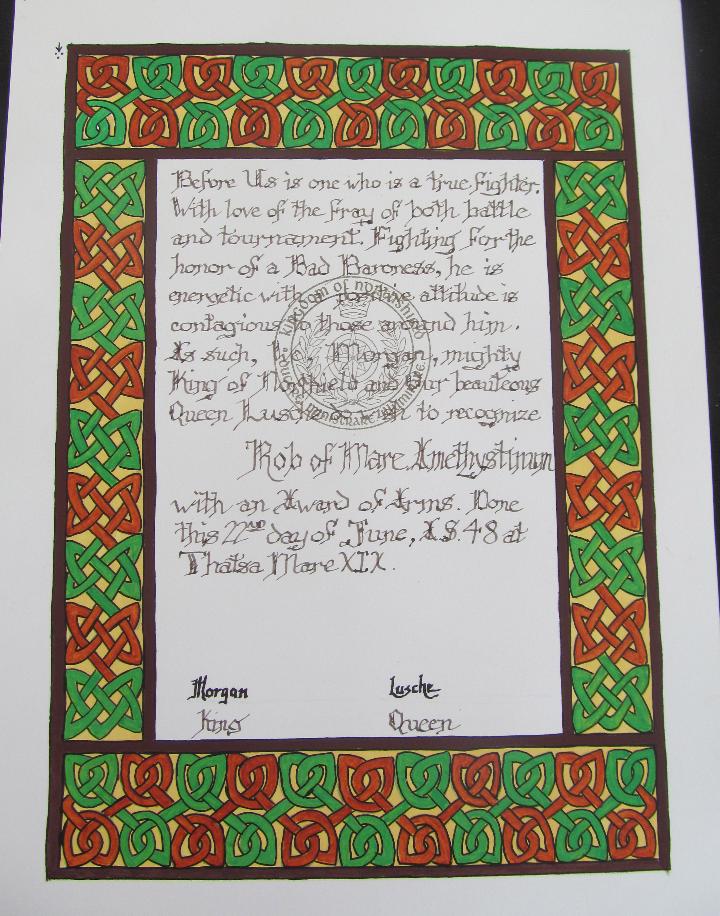 Before Us is one who is a true fighter.
With love of the fray of both battle
and tournament. Fighting for the
honor of a Bad Baroness, he is
energetic with positive attitude is
contagious to those around him.
As such, We, Morgan, mighty
King of Norþshield and Our beauteous
Queen Lusche do wish to recognize
Rob of Mare Amethystinum
with an Award of Arms. Done
this 22nd day of June, A.S. 48 at
Thatsa Mare XIX.
Morgan Lusche
King Queen
kingdom of norþshield